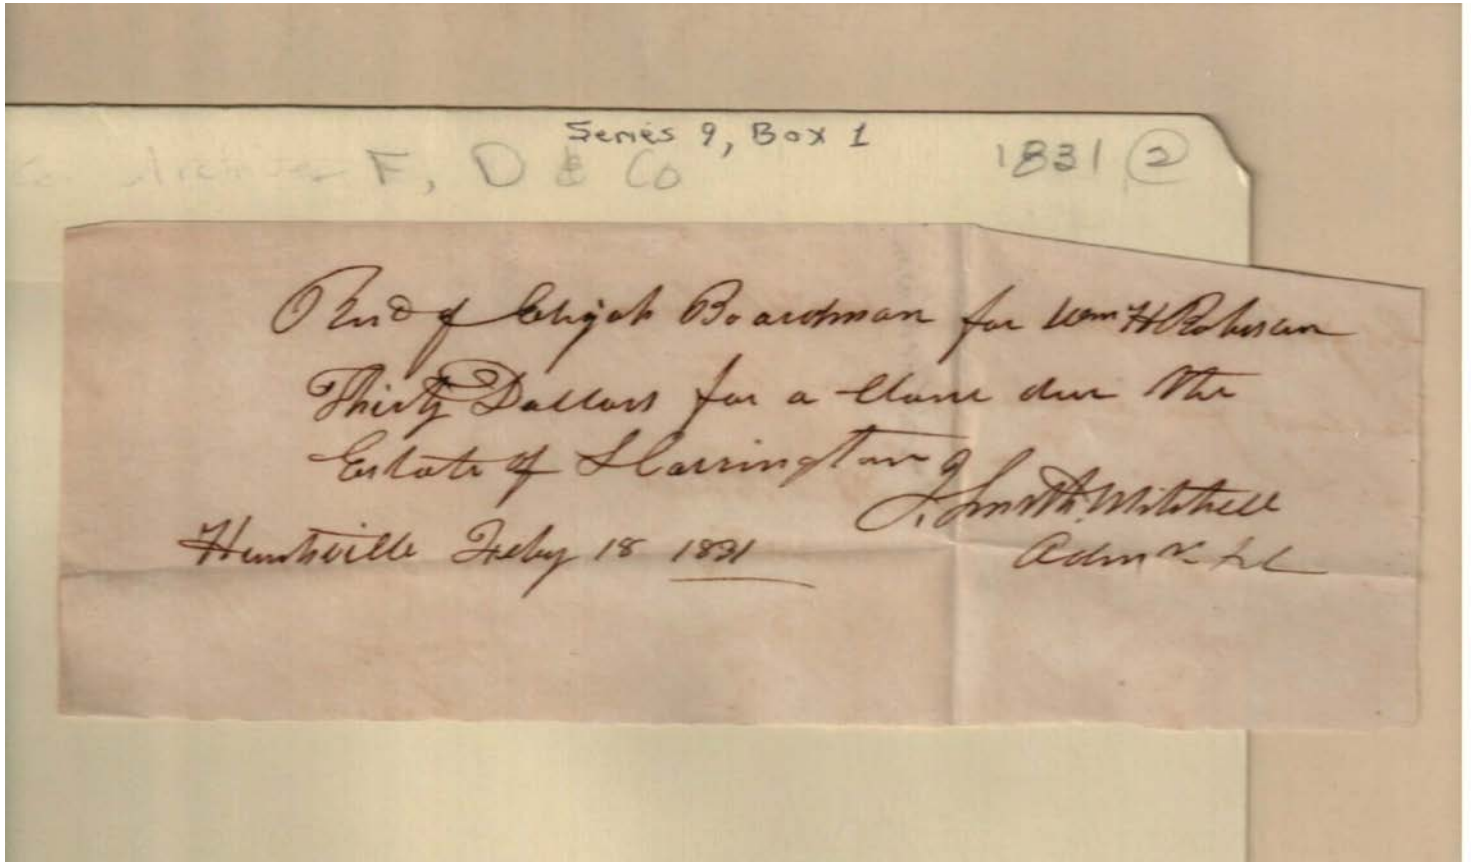 Series 9, Box 1
F, D & Co
1831 2
Recd of Elijah Boardman for Wm H Robinson
Thirty Dollars for a Claim due the
Estate of S Carrington
J. Smith Mitchell
Huntsville Feby 18 1831
Admr &c